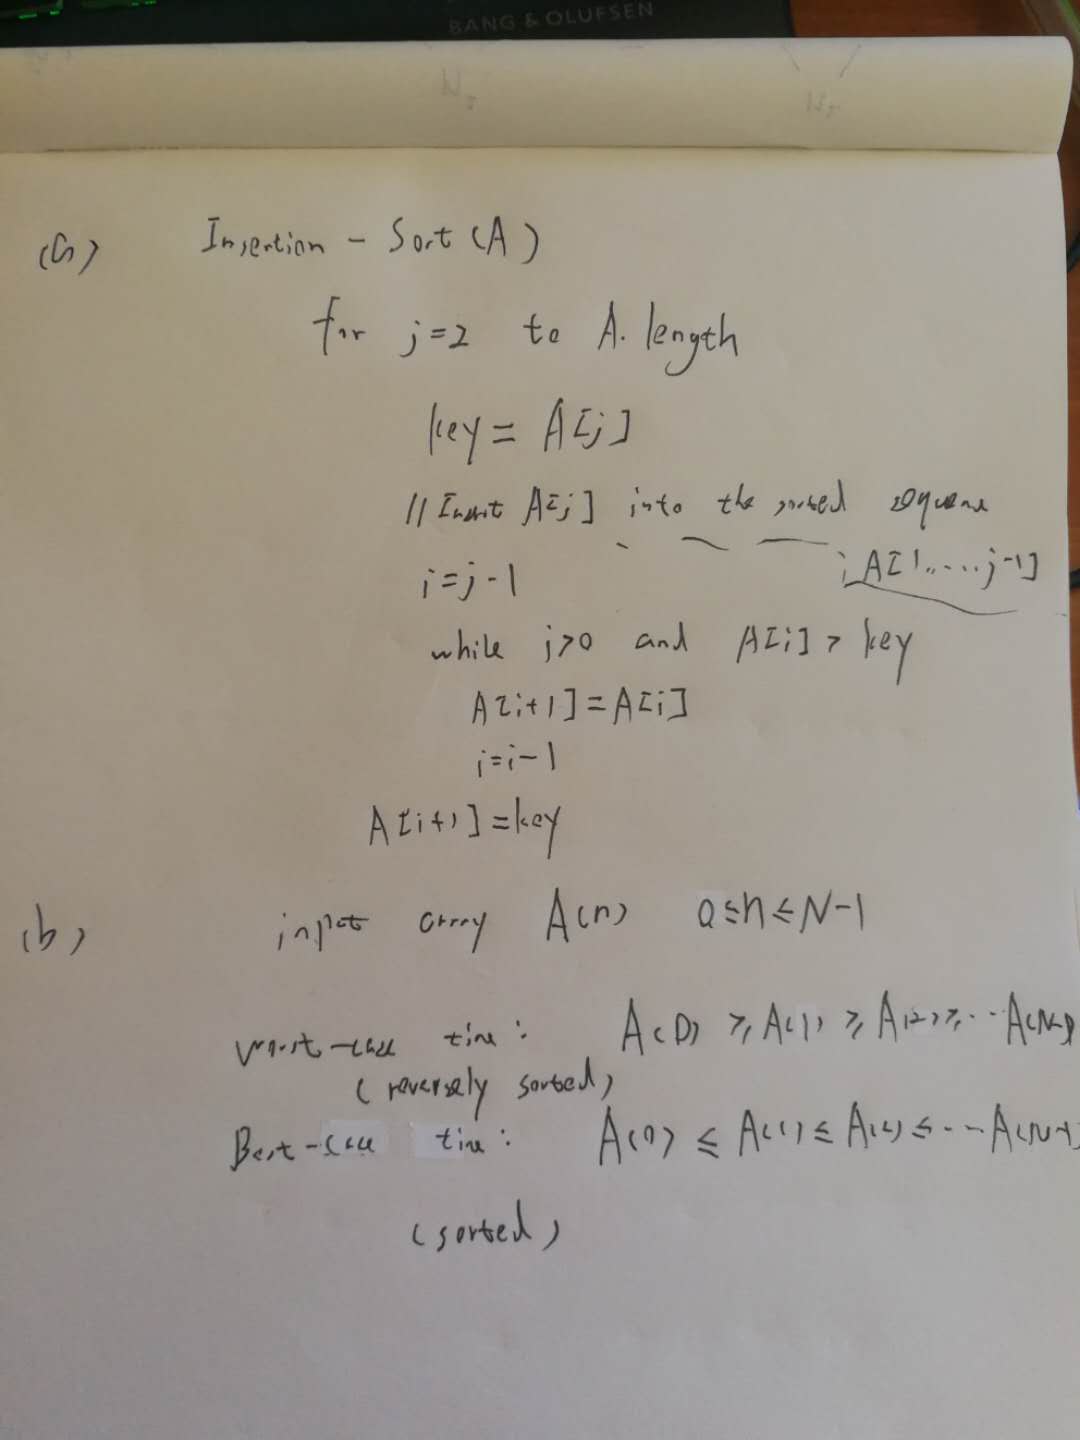 BANG & OLUFSEN
(a) Insertion - Sort (A)
for j=2 to A. length
key = A[j]
// Insert A[j] into the sorted sequence
A[1.....j-1]
i=j-1
while j>0 and A[i] > key
A[i+1]=A[i]
i=i-1
A[i+1]=key
(b) input array A(n) 0≤n≤N-1
Worst-case time: A(0) ≥ A(1) ≥ A(2) ≥ ... A(N-1)
(reversely sorted)
Best-case time: A(0) ≤ A(1) ≤ A(2) ≤ ... A(N-1)
(sorted)